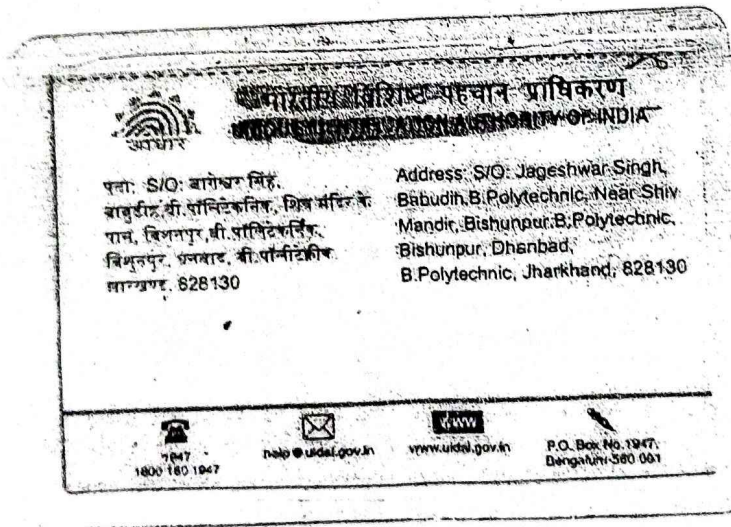 भारतीय विशिष्ट पहचान प्राधिकरण
AUTHORITY OF INDIA
आधार
पता: S/O: जागेश्वर सिंह,
बाबुडीह,बी.पॉलिटेकनिक, शिव मंदिर के
पास, बिशनपुर,बी.पॉलिटेकनिक,
बिशुनपुर, धनबाद,
झारखण्ड, 828130
Address: S/O: Jageshwar Singh,
Babudih,B.Polytechnic, Near Shiv
Mandir, Bishunpur,B.Polytechnic,
Bishunpur, Dhanbad,
B.Polytechnic, Jharkhand, 828130
1947
1800 180 1947
help@uidai.gov.in
www
www.uidai.gov.in
P.O. Box No.1947,
Bengaluru-560 001